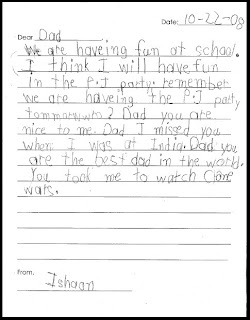 Date: 10-22-08
Dear Dad
We are haveing fun at school.
I think I will have fun
In the P.J party. remember
we are haveing the P.J party
tommaruwto? Dad you are
nice to me. Dad I missed you
when I was at India. Dad you
are the best dad in the world.
You took me to watch Clone
wars.
From,
Ishaan